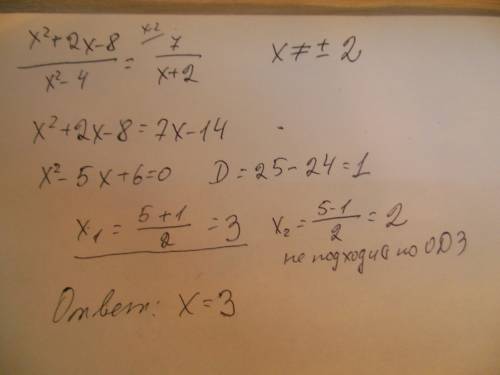 (x²+2x-8)/(x²-4) = ˣ⁻²⁄ 7/(x+2) x≠±2
x²+2x-8=7x-14
x²-5x+6=0 D=25-24=1
x₁=(5+1)/2=3 x₂=(5-1)/2=2
не подходит по ОДЗ
Ответ: x=3